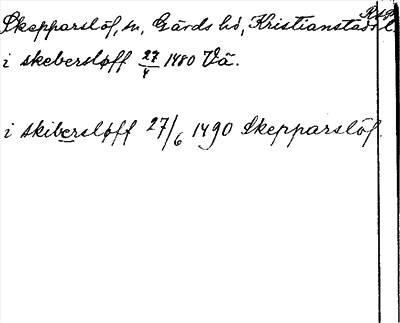 Skepparslöf, sn, Gärds hd, Kristianstads l.
i skebersløff 27/4 1480 Vä.
i skibersløff 27/6 1490 Skepparslöf.